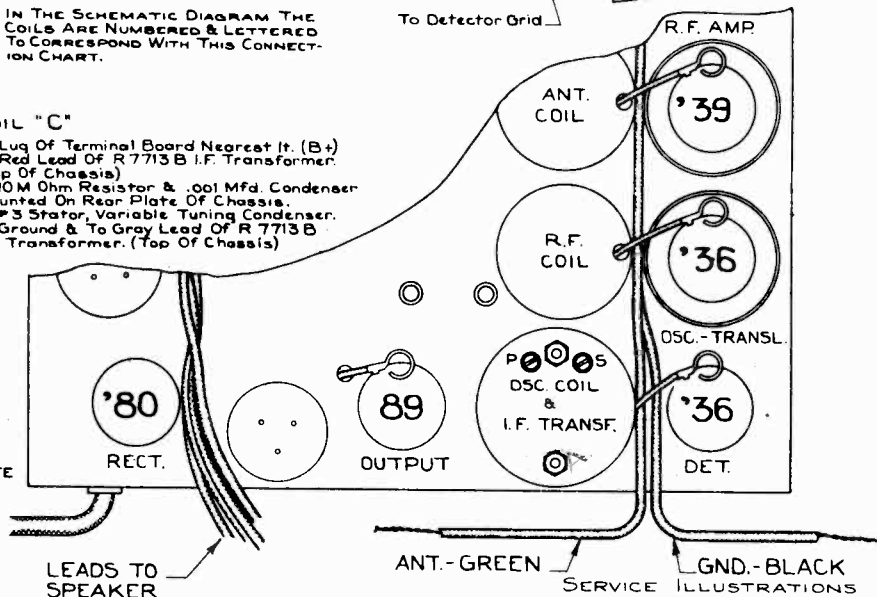 IN THE SCHEMATIC DIAGRAM THE
COILS ARE NUMBERED & LETTERED
TO CORRESPOND WITH THIS CONNECT-
ION CHART.
To Detector Grid
R.F. AMP.
ANT.
COIL
'39
"C"
Lug Of Terminal Board Nearest It. (B+)
Red Lead Of R 7713 B I.F. Transformer.
Of Chassis)
M Ohm Resistor & .001 Mfd. Condenser
On Rear Plate Of Chassis.
#3 Stator, Variable Tuning Condenser.
Ground & To Gray Lead Of R 7713 B
Transformer. (Top Of Chassis)
R.F.
COIL
'36
OSC.-TRANSL.
P S
OSC. COIL
&
I.F. TRANSF.
'80
RECT.
89
OUTPUT
'36
DET.
LEADS TO
SPEAKER
ANT.-GREEN
GND.-BLACK
SERVICE ILLUSTRATIONS